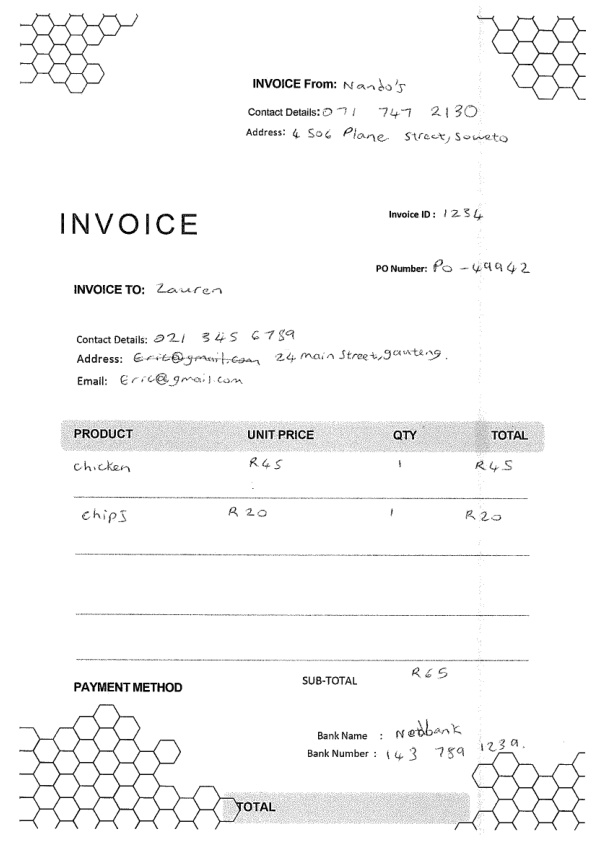 INVOICE From: Nando's
Contact Details: 071 747 2130
Address: 4 506 Plane Street, Soweto
INVOICE
Invoice ID : 1234
PO Number: PO - 49942
INVOICE TO: Lauren
Contact Details: 021 345 6789
Address: Eric@gmail.com 24 main Street, gauteng.
Email: Eric@gmail.com
PRODUCT UNIT PRICE QTY TOTAL
chicken R45 1 R45
chips R20 1 R20
SUB-TOTAL R65
PAYMENT METHOD
Bank Name : Nedbank
Bank Number : 143 789 1239.
TOTAL